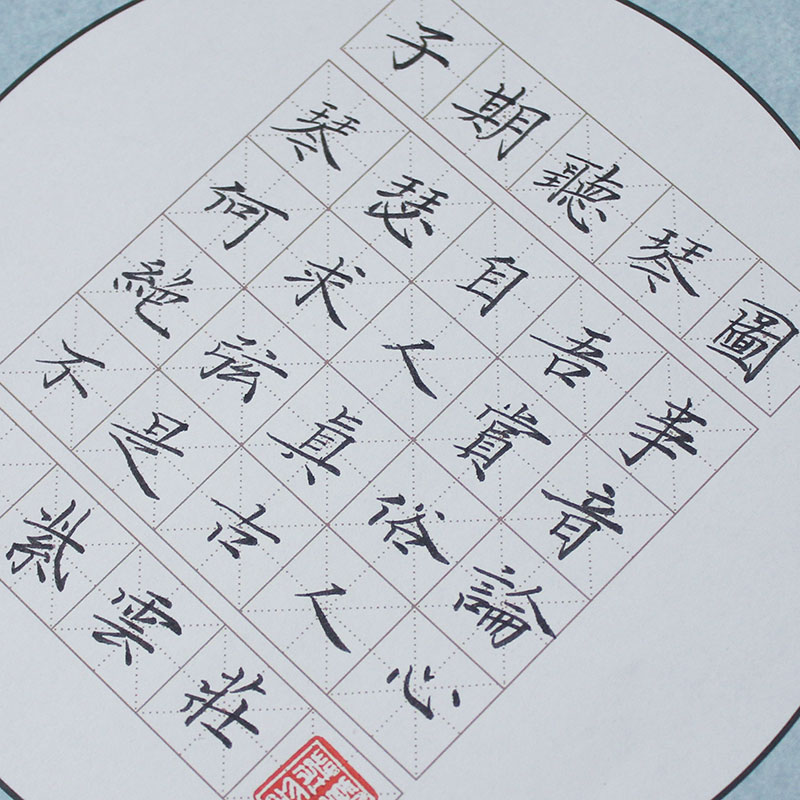 子期聽琴圖
琴瑟自吾事
何求人賞音
絕弦真俗論
不是古人心
紫雲莊